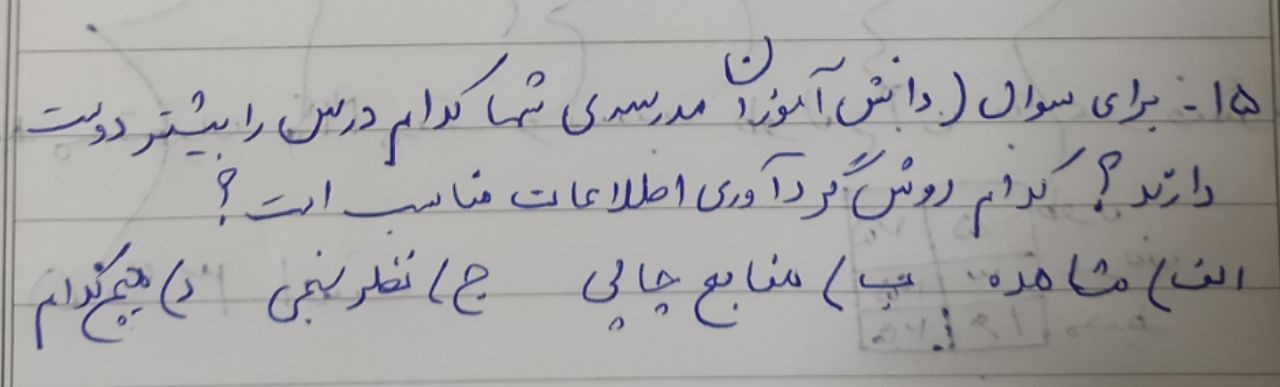 ۱۵- برای سوال (دانش آموزان مدرسه‌ی شما کدام درس را بیشتر دوست
دارند؟ کدام روش گردآوری اطلاعات مناسب است؟
الف) مشاهده ب) منابع چاپی ج) نظرسنجی د) هیچ کدام